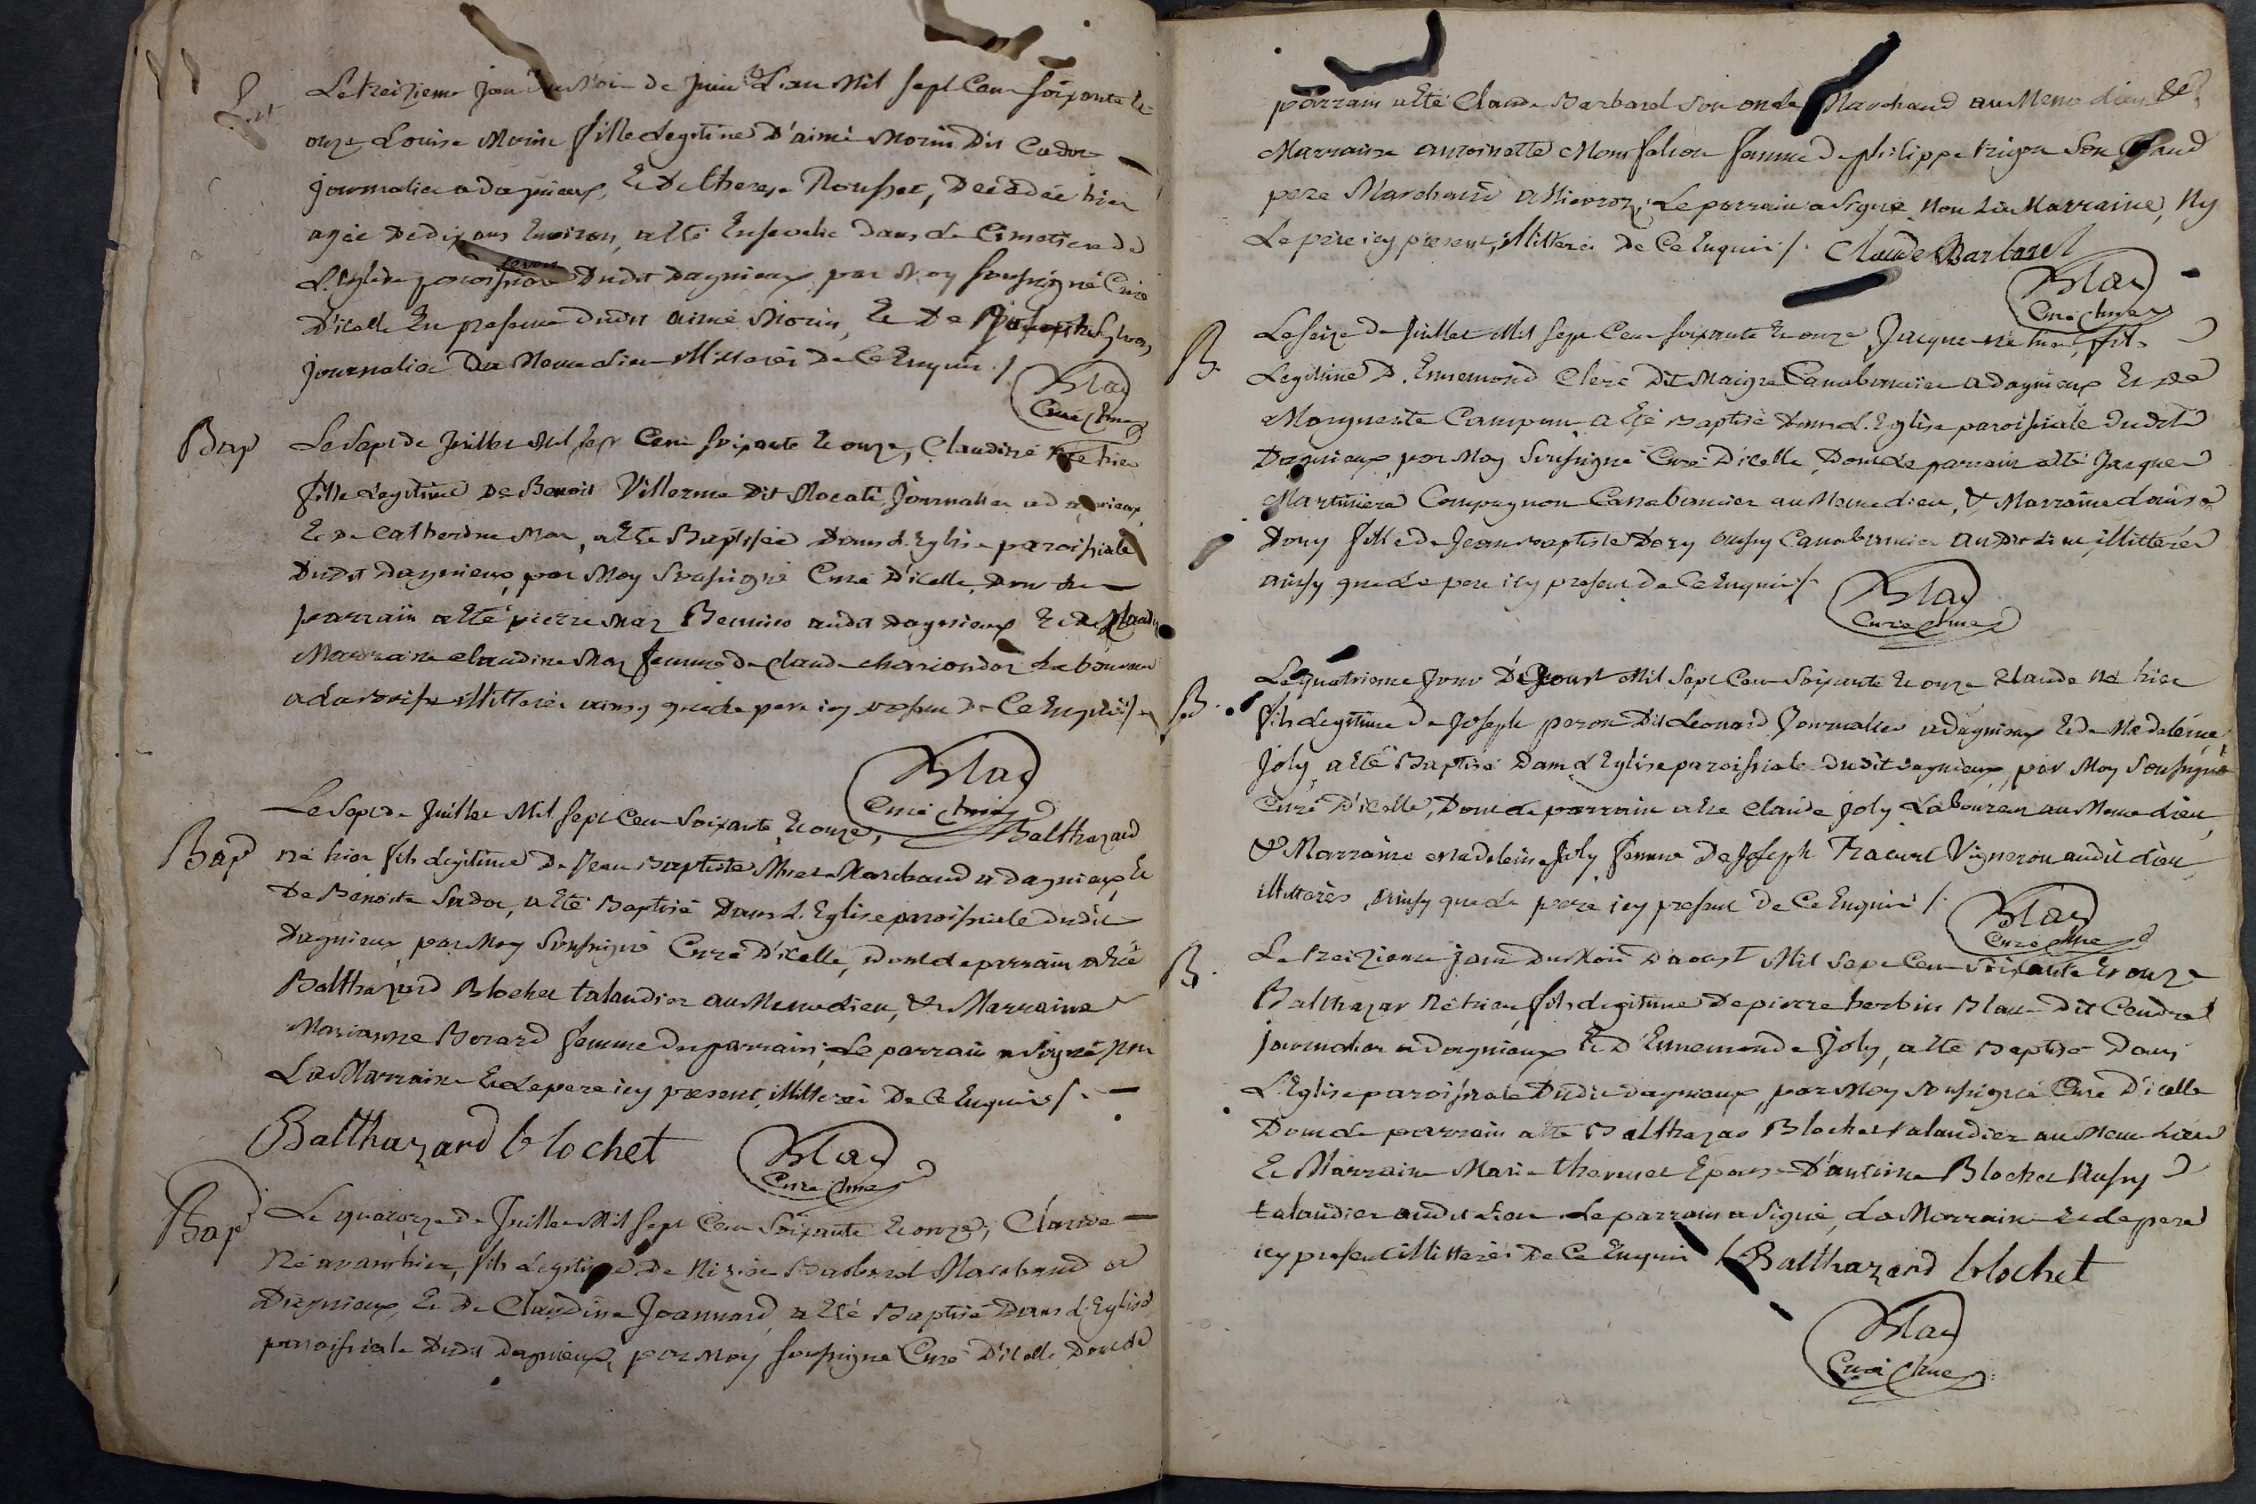 Le treizieme jour du Mois de Juin L'an Mil sept Cen soixante et
onze Louise Morin fille legitime D'aimé Morin Dit Cador
journalier a dagnieux, Et De therese Rousset, Decedée hier
agée De dix ans Environ, a Eté Ensevelie Dans Le Cimetiere De
L'Eglise paroissiale Dudit Dagnieux par Moy soussigné Curé
D'icelle En presence dudit aimé Morin, Et De Joseph
journalier Du Meme lieu illitterés De Ce Enquis /.
Blad
Curé
Bap
Le Sept de Juillet Mil sept Cen soixante Et onze, Claudine née hier
fille Legitime De Benoit Villerme Dit Mocati Journalier a dagnieux,
Et De Catherine Mar, a Eté Baptisée Dans L'Eglise paroissiale
Dudit Dagnieux, par Moy Soussigné Curé D'icelle, Dont le
parrain a Eté pierre Mar audit Dagnieux Et
Marraine claudine Mar femme de Claude Laboureur
a illitterés ainsy que le pere icy present De Ce Enquis /.
Blad
Curé
Bap
Le Sept de Juillet Mil Sept Cen Soixante Et onze, Balthazard
né hier fils Legitime De Jean Baptiste Marchand a Dagnieux, Et
De Benoite Sudor, a Eté Baptisé Dans L'Eglise paroissiale Dudit
Dagnieux, par Moy Soussigné Curé D'icelle, Dont le parrain a Eté
Balthazard Blochet talandier au Meme lieu, & Marraine
Marianne Borard femme du parrain; Le parrain a Signé non
La Marraine Et Le pere icy present, illitterés De Ce Enquis /.
Balthazard blochet
Blad
Curé
Bap
Le quatorze De Juillet Mil sept Cen Soixante Et onze, Claude
Né avant hier, fils Legitime De Nizier Barbaret Marchand a
Dagnieux, Et De Claudine Joannard, a Eté Baptisé Dans L'Eglise
paroissiale Dudit Dagnieux, par Moy soussigné Curé D'icelle Dont le
parrain a Eté Claude Barbaret Son oncle Marchand au Meme lieu
Marraine antoinette femme De philippe trigon Son Grand
pere Marchand a Le parrain a Signé Non La Marraine, Ny
Le pere icy present, illitterés De Ce Enquis /. Claude Barbaret
Blad
Curé
B.
Le Seize De Juillet Mil Sept Cen Soixante Et onze Jacque né hier, fils
Legitime D'Ennemond Clere Dit Maigre Canabassier a Dagnieux Et De
Marguerite a Eté Baptisé Dans L'Eglise paroissiale Dudit
Dagnieux, par Moy Soussigné Curé D'icelle, Dont Le parrain a Eté Jacque
Martiniere Compagnon Canabassier au Meme lieu, & Marraine Louise
Dory fille De Jean Baptiste Dory aussy Canabassier audit lieu, illitterés
ainsy que Le pere icy present De Ce Enquis /.
Blad
Curé
B.
Le quatrieme Jour D'Aoust Mil Sept Cen Soixante Et onze Claude Né hier
fils Legitime De Joseph peron Dit Leonard Journalier a Dagnieux Et De Madeleine
Joly, a Eté Baptisé Dans L'Eglise paroissiale Dudit Dagnieux, par Moy Soussigné
Curé D'icelle, Dont Le parrain a Eté Claude Joly Laboureur au Meme lieu,
& Marraine Madeleine Joly femme De Joseph Vigneron audit lieu
illitterés, ainsy que Le pere icy present De Ce Enquis /.
Blad
Curé
B.
Le treizieme jour Du Mois D'aoust Mil Sept Cen Soixante Et onze
Balthazar Né hier fils Legitime De pierre herbin Blanc Dit Cendre
journalier a Dagnieux Et D'Ennemonde Joly, a Eté Baptisé Dans
L'Eglise paroissiale Dudit Dagnieux, par Moy Soussigné Curé D'icelle
Dont Le parrain a Eté Balthazar Blochet talandier au Meme Lieu
Et Marraine Marie thevenet Epouse D'antoine Blochet Aussy
talandier audit Lieu Le parrain a Signé, La Marraine Et Le pere
icy present illitterés De Ce Enquis /. Balthazard blochet
Blad
Curé